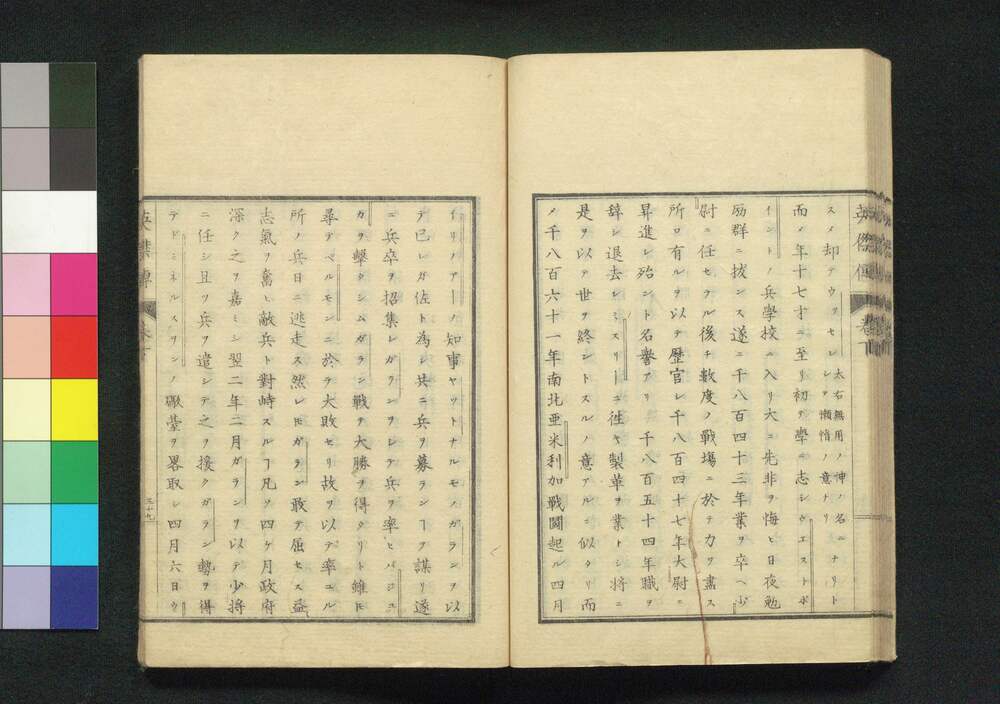 英傑傳 卷下
スメ却テウツセレレヲ 太右無用ノ神ノ名ニ ナリト
懶惰ノ意ナリ
而メ年十七才ニ至リ初テ學ニ志シウエストポ
イントノ兵學校ニ入リ大ニ先非ヲ悔ヒ日夜勉
励群ニ拔ンス遂ニ千八百四十三年業ヲ卒ヘ少
尉ニ任セラル後チ數度ノ戰場ニ於テ力ヲ盡ス
所ロ有ルヲ以テ歴官レ千八百四十七年大尉ニ
昇進レ殆ント名譽アリ千八百五十四年職ヲ
辞シ退去レミスリーニ徃キ製革ヲ業トシ將ニ
是ヲ以テ世ヲ終ントスルノ意アルニ似タリ而
メ千八百六十一年南北亜米利加戰鬪起ル四月
イリノアーノ知事ヤツトナルモノガランヲ以
テ已レガ佐ト為レ共ニ兵ヲ募ランヿヲ謀リ遂
ニ兵卒ヲ招集レガランヲレテ兵ヲ率ヒパジユ
カヲ擊タシムガラン戰ヲ大勝ヲ得タリト雖𪜈
尋デベルモンニ於テ大敗セリ故ヲ以テ率ユル
所ノ兵日ニ逃走ス然レ𪜈ガラン敢テ屈セス益
志氣ヲ奮ヒ敵兵ト對峙スルヿ凡ソ四ケ月政府
深ク之ヲ嘉ミシ翌二年二月ガランヲ以テ少將
ニ任シ且ツ兵ヲ遣シテ之ヲ援クガラン勢ヲ得
テドミネルスワンノ礮臺ヲ畧取レ四月六日ウ
英傑傳 卷下 三十九